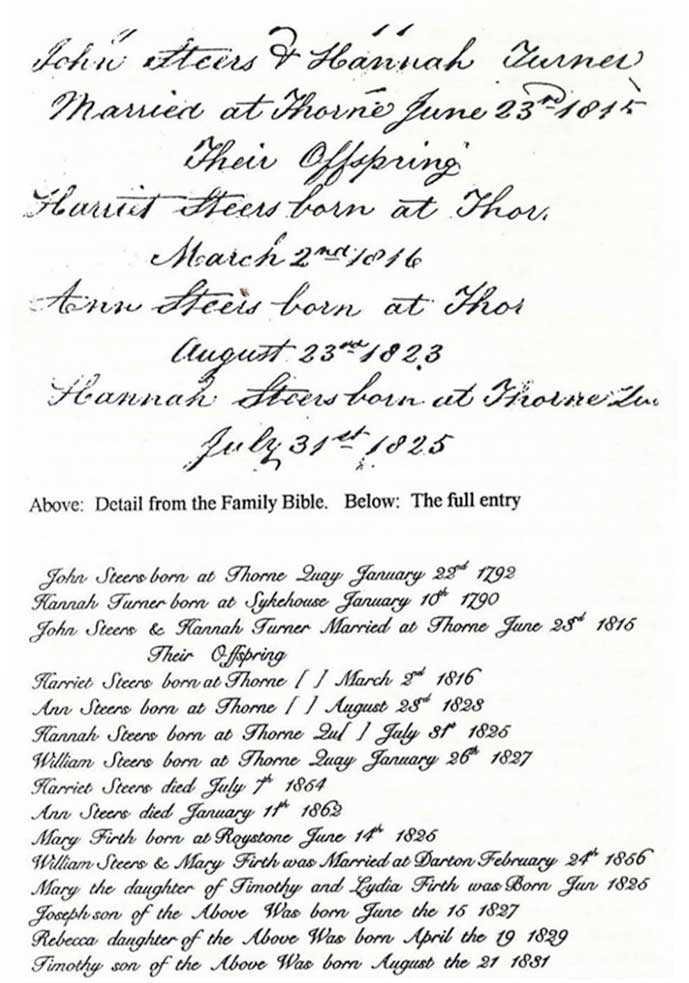 John Steers & Hannah Turner
Married at Thorne June 23rd 1815
Their Offspring
Harriet Steers born at Thor
March 2nd 1816
Ann Steers born at Thor
August 23rd 1823
Hannah Steers born at Thorne
July 31st 1825
Above: Detail from the Family Bible. Below: The full entry
John Steers born at Thorne Quay January 22nd 1792
Hannah Turner born at Sykehouse January 10th 1790
John Steers & Hannah Turner Married at Thorne June 23d 1815
Their Offspring
Harriet Steers born at Thorne [ ] March 2d 1816
Ann Steers born at Thorne [ ] August 23d 1823
Hannah Steers born at Thorne Qu[ ] July 31st 1825
William Steers born at Thorne Quay January 26th 1827
Harriet Steers died July 7th 1854
Ann Steers died January 11th 1862
Mary Firth born at Roystone June 14th 1825
William Steers & Mary Firth was Married at Darton February 24th 1856
Mary the daughter of Timothy and Lydia Firth was Born Jun 1825
Joseph son of the Above Was born June the 15 1827
Rebecca daughter of the Above Was born April the 19 1829
Timothy son of the Above Was born August the 21 1831